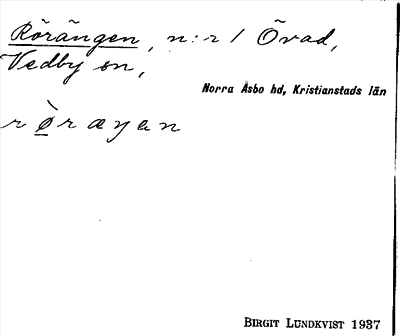 Rörängen, n:r 1 Övad,
Vedby sn,
Norra Åsbo hd, Kristianstads län
rø̀ræŋen
BIRGIT LUNDKVIST 1937